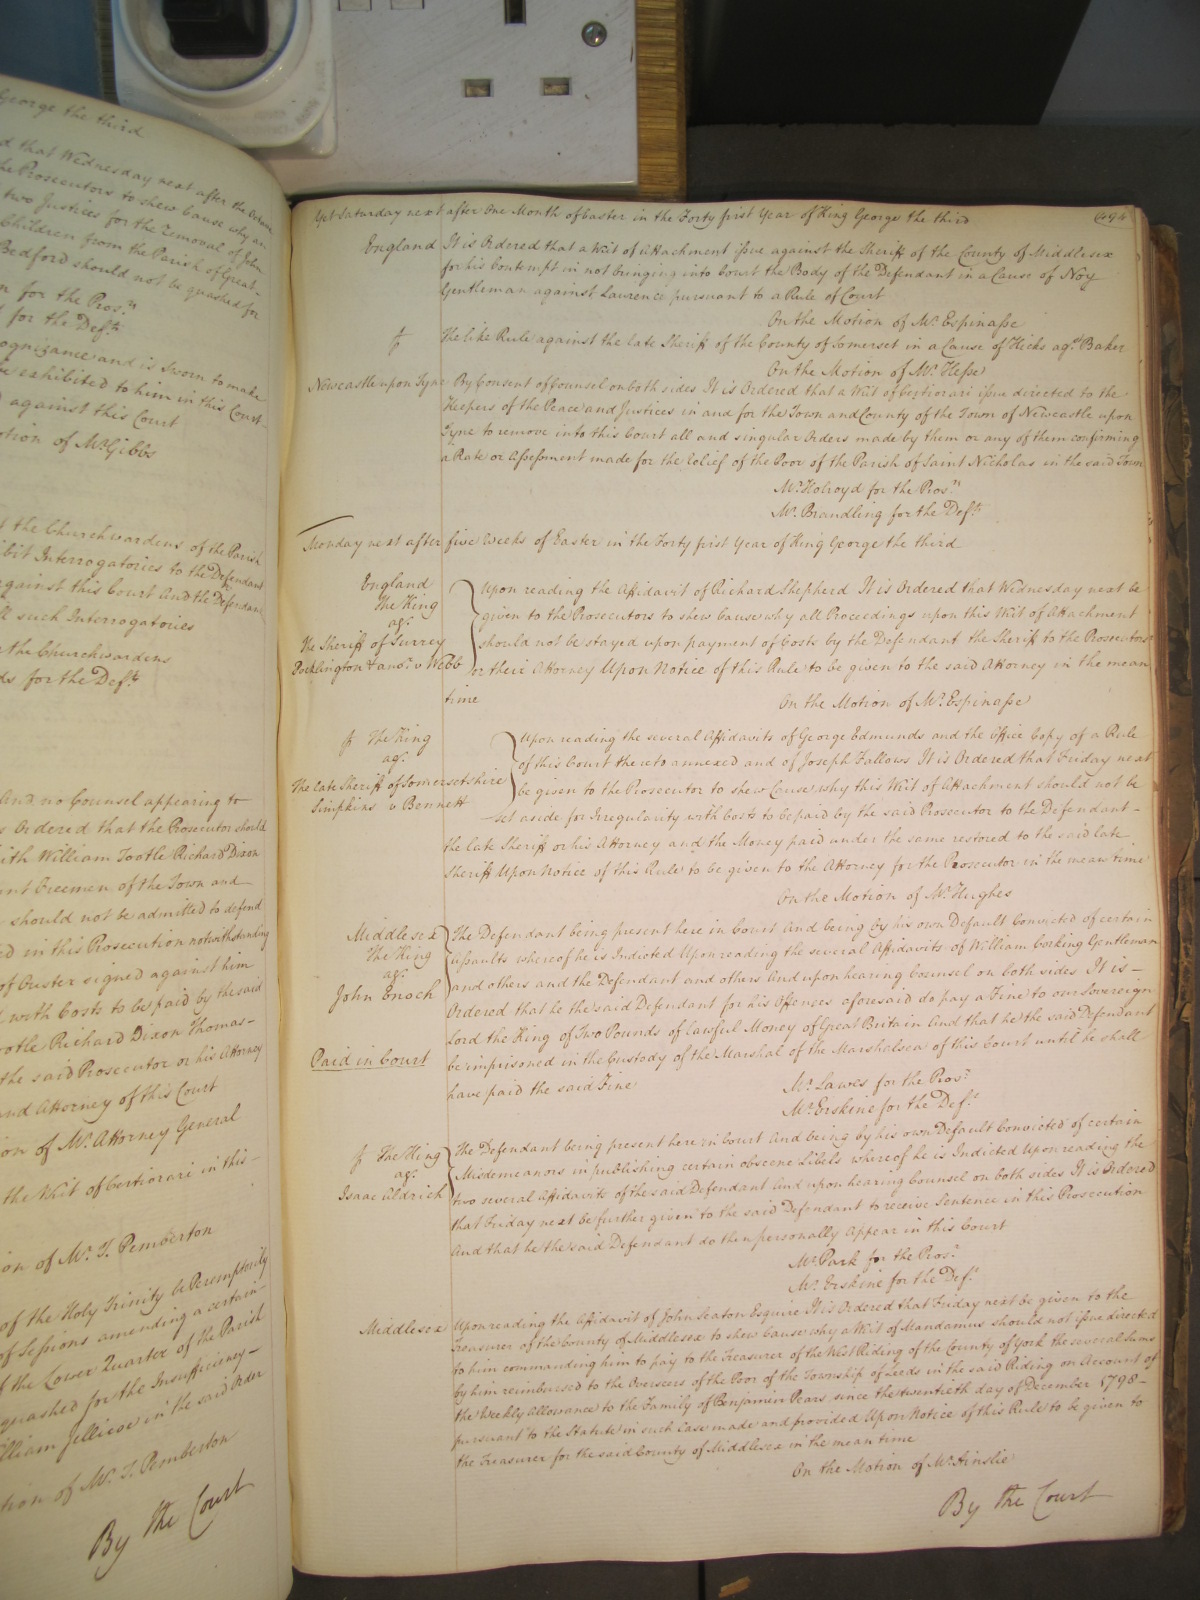 George the third
d that Wednesday next after the
the Prosecutors to shew Cause why an
two Justices for the removal of John
Children from the Parish of Great
Bedford should not be quashed for
n for the Pros.n
for the Def.t
ognizance and is Sworn to make
be exhibited to him in this Court
against this Court
otion of Mr. Gibbs
the Churchwardens of the Parish
ibit Interrogatories to the Defendant
against this Court And the Defendant
ll such Interrogatories
the Churchwardens
ds for the Def.t
And no Counsel appearing to
s Ordered that the Prosecutor should
ith William Tootle Richard Dixon
ent Freemen of the Town and
should not be admitted to defend
ed in this Prosecution notwithstanding
of Ouster signed against him
with Costs to be paid by the said
ootle Richard Dixon Thomas
the said Prosecutor or his Attorney
and Attorney of this Court
ion of Mr. Attorney General
the Writ of Certiorari in this
on of Mr. T. Pemberton
of the Holy Trinity be Peremptorily
of Sessions amending a certain
f the Lower Quarter of the Parish
quashed for the Insufficiency
William Jellicoe in the said Order
tion of Mr. T. Pemberton
By the Court
Yet Saturday next after One Month of Easter in the Forty first Year of King George the third
494
England It is Ordered that a Writ of Attachment issue against the Sheriff of the County of Middlesex
for his Contempt in not bringing into Court the Body of the Defendant in a Cause of Noy
Gentleman against Laurence pursuant to a Rule of Court
On the Motion of Mr. Espinasse
The like Rule against the late Sheriff of the County of Somerset in a Cause of Hicks ag.st Baker
On the Motion of Mr. Hesse
Newcastle upon Tyne By Consent of Counsel on both sides It is Ordered that a Writ of Certiorari issue directed to the
Keepers of the Peace and Justices in and for the Town and County of the Town of Newcastle upon
Tyne to remove into this Court all and singular Orders made by them or any of them confirming
a Rate or Assessment made for the relief of the Poor of the Parish of Saint Nicholas in the said Town
Mr. Holroyd for the Pros.n
Mr. Brandling for the Def.t
Monday next after five Weeks of Easter in the Forty first Year of King George the third
England
The King
ag.t
The Sheriff of Surrey
Pocklington & anor. v Webb
Upon reading the Affidavit of Richard Shepherd It is Ordered that Wednesday next be
given to the Prosecutors to shew Cause why all Proceedings upon this Writ of Attachment
should not be stayed upon payment of Costs by the Defendant the Sheriff to the Prosecutors
or their Attorney Upon Notice of this Rule to be given to the said Attorney in the mean
time
On the Motion of Mr. Espinasse
The King
ag.t
The late Sheriff of Somersetshire
Simpkins v Bennett
Upon reading the several Affidavits of George Edmunds and the Office Copy of a Rule
of this Court thereto annexed and of Joseph Fallows It is Ordered that Friday next
be given to the Prosecutor to shew Cause why this Writ of Attachment should not be
set aside for Irregularity with Costs to be paid by the said Prosecutor to the Defendant
the late Sheriff or his Attorney and the Money paid under the same restored to the said late
Sheriff Upon Notice of this Rule to be given to the Attorney for the Prosecutor in the mean time
On the Motion of Mr. Hughes
Middlesex
The King
ag.t
John Enoch
Paid in Court
The Defendant being present here in Court And being by his own Default Convicted of certain
Assaults whereof he is Indicted Upon reading the several Affidavits of William Cocking Gentleman
and others and the Defendant and others And upon hearing Counsel on both sides It is
Ordered that he the said Defendant for his Offences aforesaid do pay a Fine to our Sovereign
Lord the King of Two Pounds of lawful Money of Great Britain And that he the said Defendant
be imprisoned in the Custody of the Marshal of the Marshalsea of this Court until he shall
have paid the said Fine
Mr. Lawes for the Pros.r
Mr. Erskine for the Def.t
The King
ag.t
Isaac Aldrich
The Defendant being present here in Court And being by his own Default Convicted of certain
Misdemeanors in publishing certain obscene Libels whereof he is Indicted Upon reading the
two several Affidavits of the said Defendant And upon hearing Counsel on both sides It is Ordered
that Friday next be further given to the said Defendant to receive Sentence in this Prosecution
And that he the said Defendant do then personally Appear in this Court
Mr. Park for the Pros.r
Mr. Erskine for the Def.t
Middlesex Upon reading the Affidavit of John Seaton Esquire It is Ordered that Friday next be given to the
Treasurer of the County of Middlesex to shew Cause why a Writ of Mandamus should not issue directed
to him commanding him to pay to the Treasurer of the West Riding of the County of York the several sums
by him reimbursed to the Overseers of the Poor of the Township of Leeds in the said Riding on Account of
the Weekly Allowance to the Family of Benjamin Pears since the twentieth day of December 1798
pursuant to the Statute in such Case made and provided Upon Notice of this Rule to be given to
the Treasurer for the said County of Middlesex in the mean time
On the Motion of Mr. Ainslie
By the Court